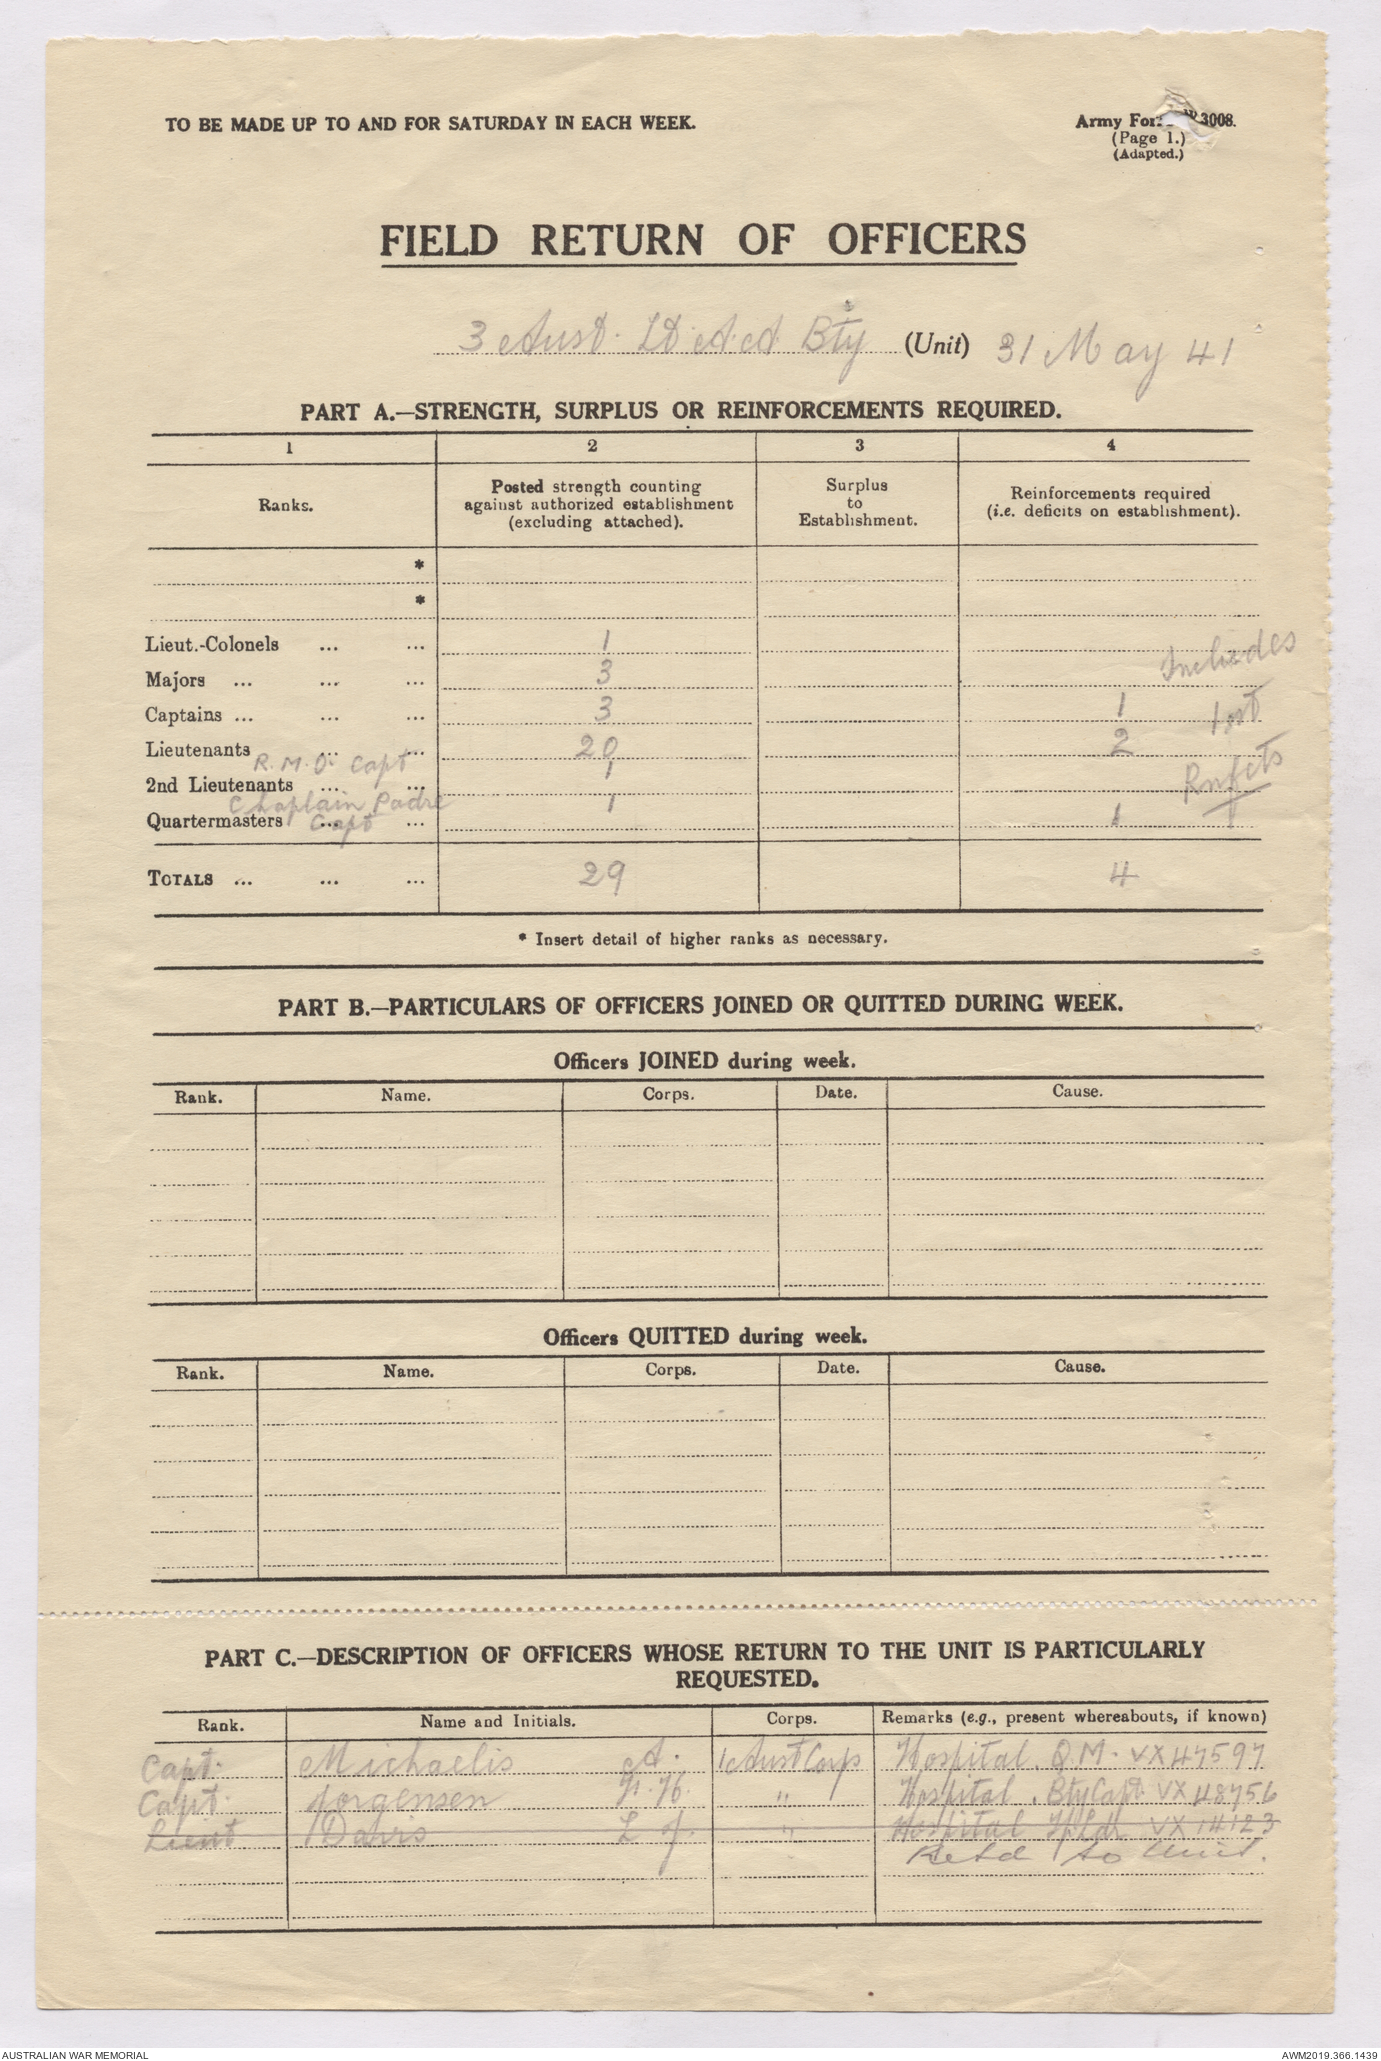 TO BE MADE UP TO AND FOR SATURDAY IN EACH WEEK.
Army For W 3008.
(Page 1.)
(Adapted.)
FIELD RETURN OF OFFICERS
3 Aust. Lt A A Bty (Unit) 31 May 41
PART A.—STRENGTH, SURPLUS OR REINFORCEMENTS REQUIRED.
1 2 3 4
Ranks.
Posted strength counting
against authorized establishment
(excluding attached).
Surplus
to
Establishment.
Reinforcements required
(i.e. deficits on establishment).
*
*
Lieut.-Colonels ... ... 1
Includes
Majors ... ... ... 3
Captains ... ... ... 3 1
1st
Lieutenants ... ... 20 2
R.M.O. Capt 1
Rnfcts
2nd Lieutenants ... ...
Chaplain Padre 1
Quartermasters ... ... 1
Capt
TOTALS ... ... ... 29 4
* Insert detail of higher ranks as necessary.
PART B.—PARTICULARS OF OFFICERS JOINED OR QUITTED DURING WEEK.
Officers JOINED during week.
Rank. Name. Corps. Date. Cause.
Officers QUITTED during week.
Rank. Name. Corps. Date. Cause.
PART C.—DESCRIPTION OF OFFICERS WHOSE RETURN TO THE UNIT IS PARTICULARLY
REQUESTED.
Rank. Name and Initials. Corps. Remarks (e.g., present whereabouts, if known)
Capt. Michaelis A. 1 Aust Corps Hospital. Q.M. VX47597
Capt. Jorgensen H. " Hospital. Bty Capt VX48756
Lieut Davis L J. " Hospital VX14123
Retd to Unit.
AUSTRALIAN WAR MEMORIAL
AWM2019.366.1439